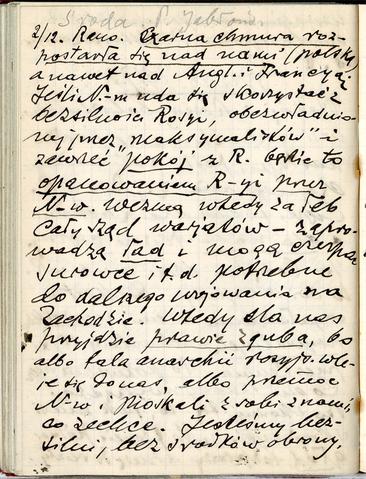 Środa. P. Jabłoń.
2/12. Reno. Czarna chmura roz-
postarła się nad nami (polską
a nawet nad Angl. i Francyą.
Jeśli N-m uda się skorzystać z
bezsilności Rosyi, obezwładnio-
nej przez „maksymalistów” i
zawrzeć „pokój” z R. będzie to
opanowaniem R-yi przez
N-w. Wezmą wtedy za łeb
cały rząd warjatów – zapro-
wadzą ład i mogą czerpać
surowce i t.d. potrzebne
do dalszego wojowania na
Zachodzie. Wtedy dla nas
przyjdzie prawie zguba, bo
albo fala anarchii rosyjs. wle-
je się do nas, albo przemoc
N-w i Moskali zrobi z nami,
co zechce. Jesteśmy bez-
silni, bez środków obrony.